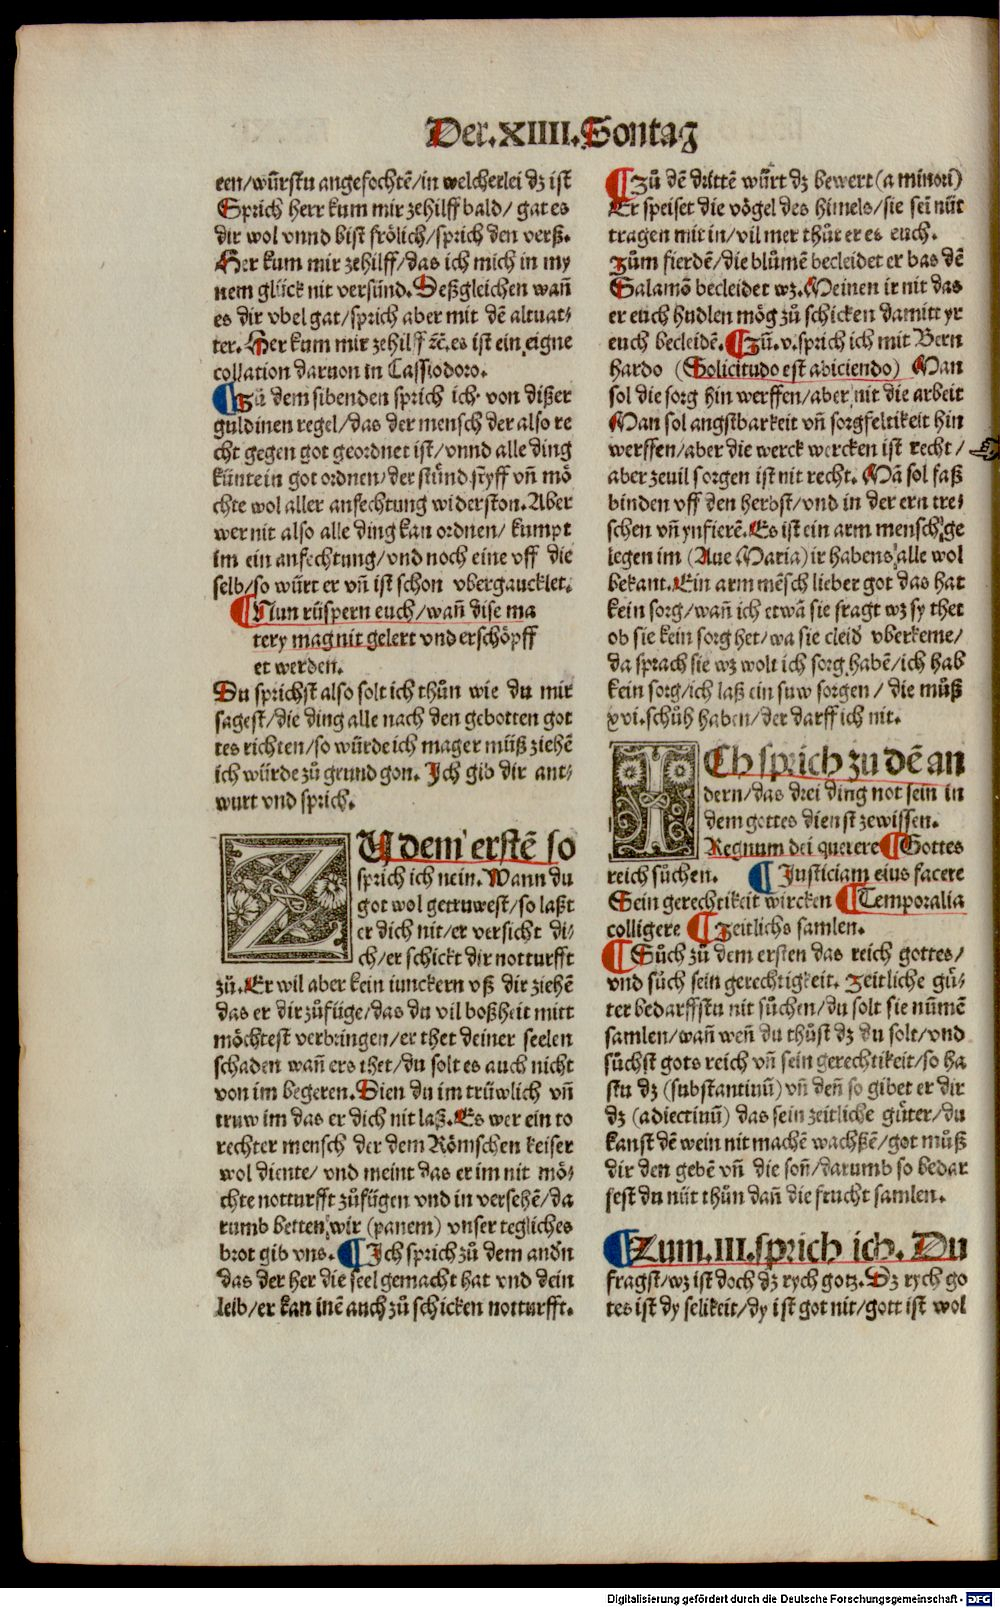 Der.XIIII.Sontag
een/würstu angefochtē/in welcherlei dz ist
Sprich herr kum mir zehilff bald/ gat es
dir wol vnnd bist frölich/sprich den verß.
Her kum mir zehilff/das ich mich in my
nem glück nit versünd. Deßgleichen wañ
es dir vbel gat/sprich aber mit dē altuat-
ter. Her kum mir zehilff ꝛc̄. es ist ein eigne
collation daruon in Cassiodoro.
¶ Zů dem sibenden sprich ich von dißer
guldinen regel/das der mensch der also re
cht gegen got geordnet ist/vnnd alle ding
künte in got ordnen/der stünd styff vñ mö
chte wol aller anfechtung widerston. Aber
wer nit also alle ding kan ordnen/ kumpt
im ein anfechtung/vnd noch eine vff die
selb/so würt er vñ ist schon vbergaucklet.
¶ Nun rüspern euch/wañ dise ma
tery mag nit gelert vnd erschöpff
et werden.
Du sprichst also solt ich thůn wie du mir
sagest/die ding alle nach den gebotten got
tes richten/so würde ich mager müß ziehē
ich würde zů grund gon. Ich gib dir ant-
wurt vnd sprich.
ZU dem erstē so
sprich ich nein. Wann du
got wol getruwest/so laßt
er dich nit/er versicht di-
ch/er schickt dir notturfft
zů. Er wil aber kein iunckern vß dir ziehē
das er dir zůfüge/das du vil boßheit mitt
möchtest verbringen/er thet deiner seelen
schaden wañ ers thet/du solt es auch nicht
von im begeren. Dien du im trüwlich vñ
truw im das er dich nit laß. Es wer ein to
rechter mensch der dem Römschen keiser
wol diente/ vnd meint das er im nit mö-
chte notturfft zůfügen vnd in versehē/da
rumb betten wir (panem) vnser tegliches
brot gib vns. ¶ Ich sprich zů dem andn̄
das der her die seel gemacht hat vnd dein
leib/er kan inē auch zů schicken notturfft.
¶ Zů dē drittē würt dz bewert (a minori)
Er speiset die vögel des himels/sie sei̅ nüt
tragen mit in/vil mer thůt er es euch.
Zům fierdē/die blůmē becleidet er bas dē
Salamō becleidet wz. Meinen ir nit das
er euch hudlen mög zů schicken damitt yr
euch becleidē. ¶ Zů. v. sprich ich mit Bern
hardo (Solicitudo est abiciendo) Man
sol die sorg hin werffen/aber nit die arbeit
Man sol angstbarkeit vñ sorgfeltikeit hin
werffen/aber die werck wercken ist recht/
aber zeuil sorgen ist nit recht. Mā sol faß
binden vff den herbst/vnd in der ern tre-
schen vñ ynfierē. Es ist ein arm mensch ge
legen im (Aue Maria) ir habens alle wol
bekant. Ein arm mēsch lieber got das hat
kein sorg/wañ ich etwā sie fragt wz sy thet
ob sie kein sorg het/wa sie cleid vberkeme/
da sprach sie wz wolt ich sorg habē/ich hab
kein sorg/ich laß ein suw sorgen/ die můß
xvi. schůh haben/der darff ich nit.
ICh sprich zu dē an
dern/das drei ding not sein in
dem gottes dienst zewissen.
Regnum dei querere ¶ Gottes
reich sůchen. ¶ Justiciam eius facere
Sein gerechtikeit wircken ¶ Temporalia
colligere ¶ Zeitlichs samlen.
¶ Sůch zů dem ersten das reich gottes/
vnd sůch sein gerechtigkeit. Zeitliche gü-
ter bedarffstu nit sůchen/du solt sie nūmē
samlen/wañ weñ du thůst dz du solt/vnd
sůchst gots reich vñ sein gerechtikeit/so ha
stu dz (substantinū) vñ deñ so gibet er dir
dz (adiectinū) das sein zeitliche güter/du
kanst dē wein nit machē wachßē/got můß
dir den gebē vñ die soñ/darumb so bedar
fest du nüt thůn dañ die frucht samlen.
¶ Zum.III.sprich ich. Du
fragst/wz ist doch dz rych gotz. Dz rych go
tes ist dy selikeit/dy ist got nit/gott ist wol
Digitalisierung gefördert durch die Deutsche Forschungsgemeinschaft - DFG